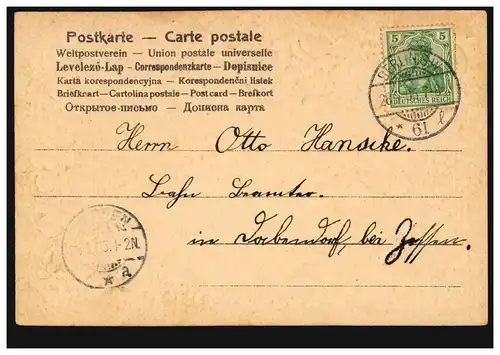 Postkarte — Carte postale
Weltpostverein — Union postale universelle
Levelező-Lap — Correspondenzkarte — Dopisnice
Kartă korespondencyjna — Korespondenční lístek
Briefkaart — Cartolina postale — Post card — Brefkort
Открытое письмо — Дописна карта
5 5
DEUTSCHES REICH
BERLIN S.W.
* 61 l
Herrn Otto Hanscke.
Bahn Beamter.
in Dabendorf, bei Zossen.
1-2N.
* a